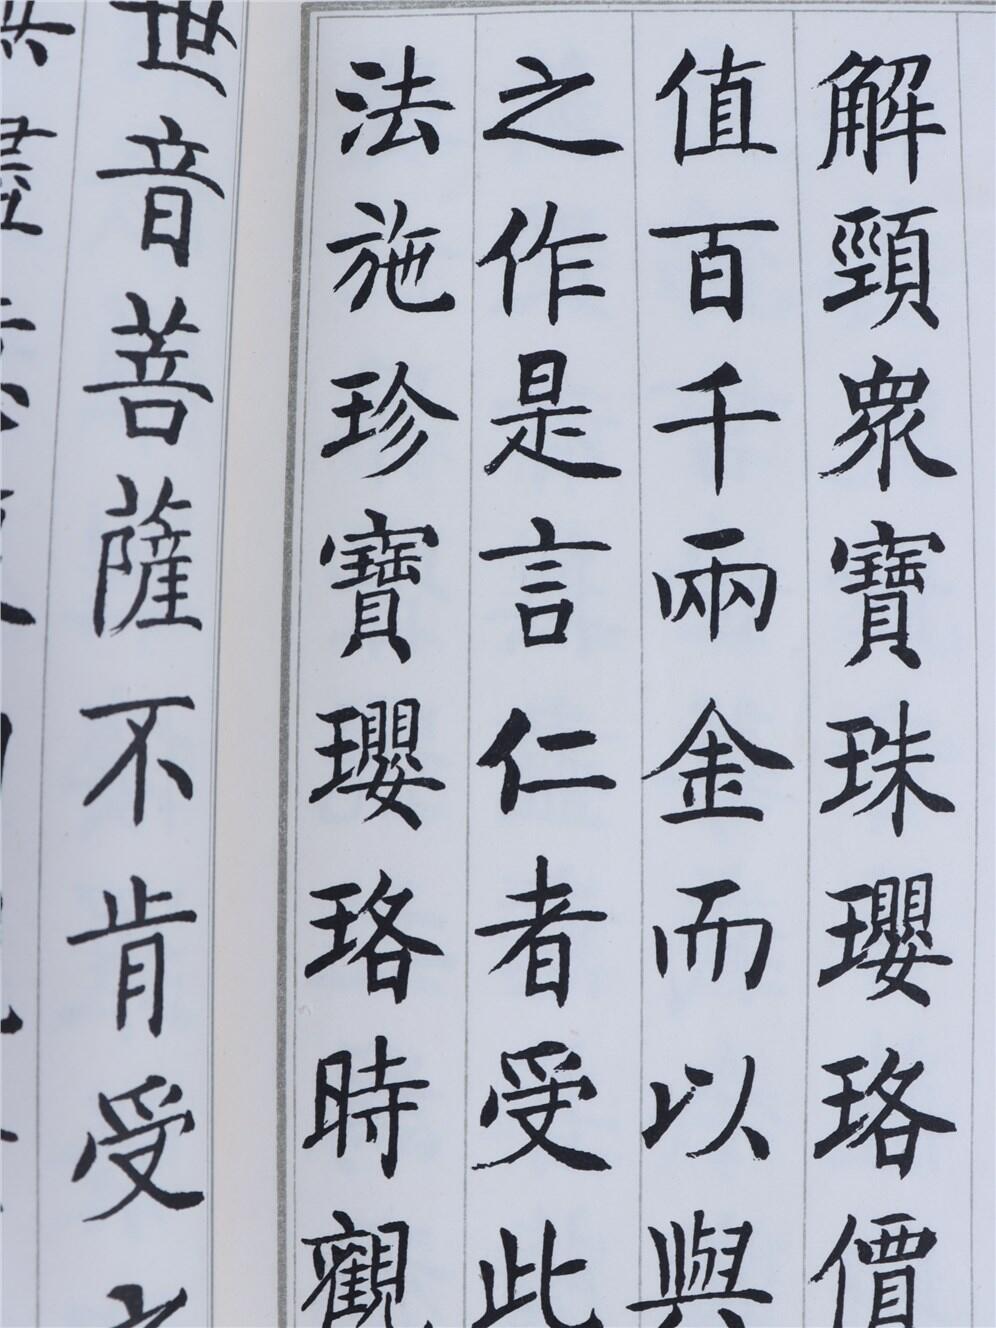 解頸眾寶珠瓔珞價
值百千兩金而以與
之作是言仁者受此
法施珍寶瓔珞時觀
世音菩薩不肯受